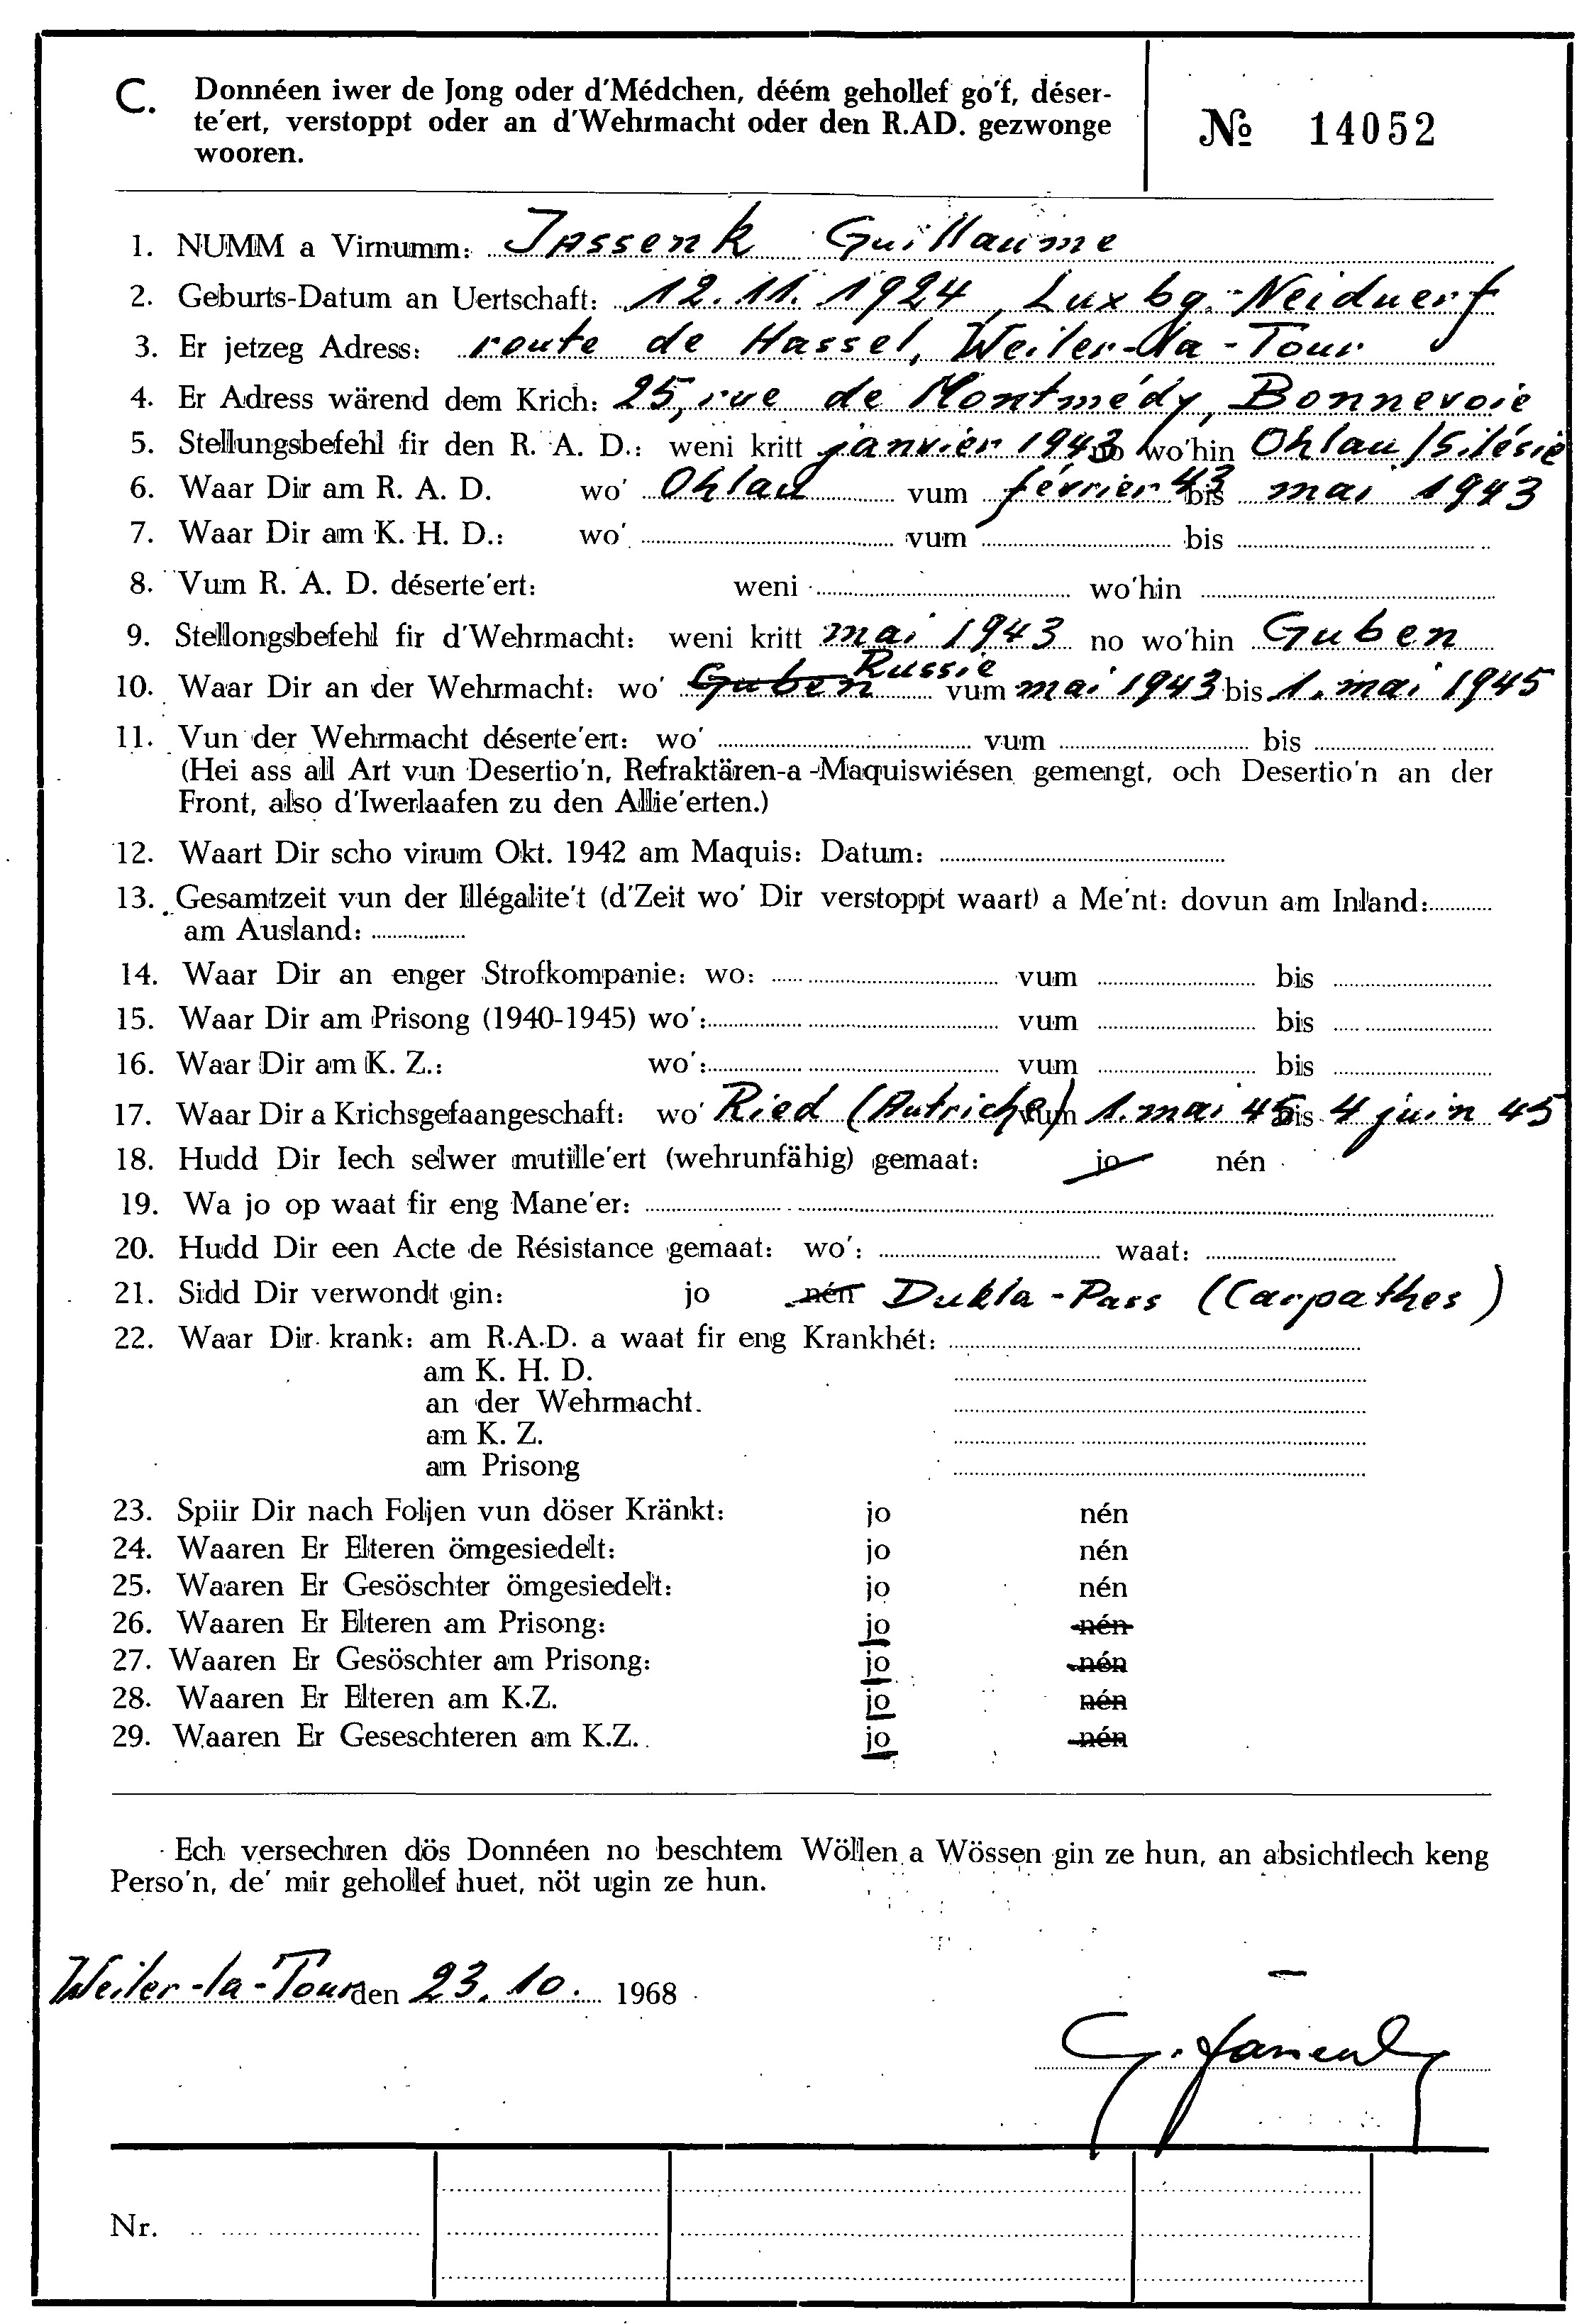 C. Donnéen iwer de Jong oder d'Médchen, déém gehollef go'f, déser-
te'ert, verstoppt oder an d'Wehrmacht oder den R.AD. gezwonge
wooren.
№ 14052
1. NUMM a Virnumm: Jassenk Guillaume
2. Geburts-Datum an Uertschaft: 12.11.1924, Luxbg.-Neiduerf
3. Er jetzeg Adress: route de Hassel, Weiler-la-Tour
4. Er Adress wärend dem Krich: 25, rue de Montmédy, Bonnevoie
5. Stellungsbefehl fir den R. A. D.: weni kritt janvier 1943 no wo'hin Ohlau/Silésie
6. Waar Dir am R. A. D. wo' Ohlau vum février 43 bis mai 1943
7. Waar Dir am K. H. D.: wo' vum bis
8. Vum R. A. D. déserte'ert: weni wo'hin
9. Stellongsbefehl fir d'Wehrmacht: weni kritt mai 1943 no wo'hin Guben
10. Waar Dir an der Wehrmacht: wo' Guben Russie vum mai 1943 bis 1. mai 1945
11. Vun der Wehrmacht déserte'ert: wo' vum bis
(Hei ass all Art vun Desertio'n, Refraktären-a-Maquiswiésen gemengt, och Desertio'n an der
Front, also d'Iwerlaafen zu den Allie'erten.)
12. Waart Dir scho virum Okt. 1942 am Maquis: Datum:
13. Gesamtzeit vun der Illégalite't (d'Zeit wo' Dir verstoppt waart) a Me'nt: dovun am Inland:
am Ausland:
14. Waar Dir an enger Strofkompanie: wo: vum bis
15. Waar Dir am Prisong (1940-1945) wo': vum bis
16. Waar Dir am K. Z.: wo': vum bis
17. Waar Dir a Krichsgefaangeschaft: wo' Ried (Autriche) vum 1. mai 45 bis 4 juin 45
18. Hudd Dir Iech selwer mutille'ert (wehrunfähig) gemaat: jo nén
19. Wa jo op waat fir eng Mane'er:
20. Hudd Dir een Acte de Résistance gemaat: wo': waat:
21. Sidd Dir verwondt gin: jo nén Dukla-Pass (Carpathes)
22. Waar Dir krank: am R.A.D. a waat fir eng Krankhét:
am K. H. D.
an der Wehrmacht.
am K. Z.
am Prisong
23. Spiir Dir nach Foljen vun döser Kränkt: jo nén
24. Waaren Er Elteren ömgesiedelt: jo nén
25. Waaren Er Gesöschter ömgesiedelt: jo nén
26. Waaren Er Elteren am Prisong: jo nén
27. Waaren Er Gesöschter am Prisong: jo nén
28. Waaren Er Elteren am K.Z. jo nén
29. Waaren Er Geseschteren am K.Z. jo nén
Ech versechren dös Donnéen no beschtem Wöllen a Wössen gin ze hun, an absichtlech keng
Perso'n, de' mir gehollef huet, nöt ugin ze hun.
Weiler-la-Tour den 23.10. 1968
Nr.